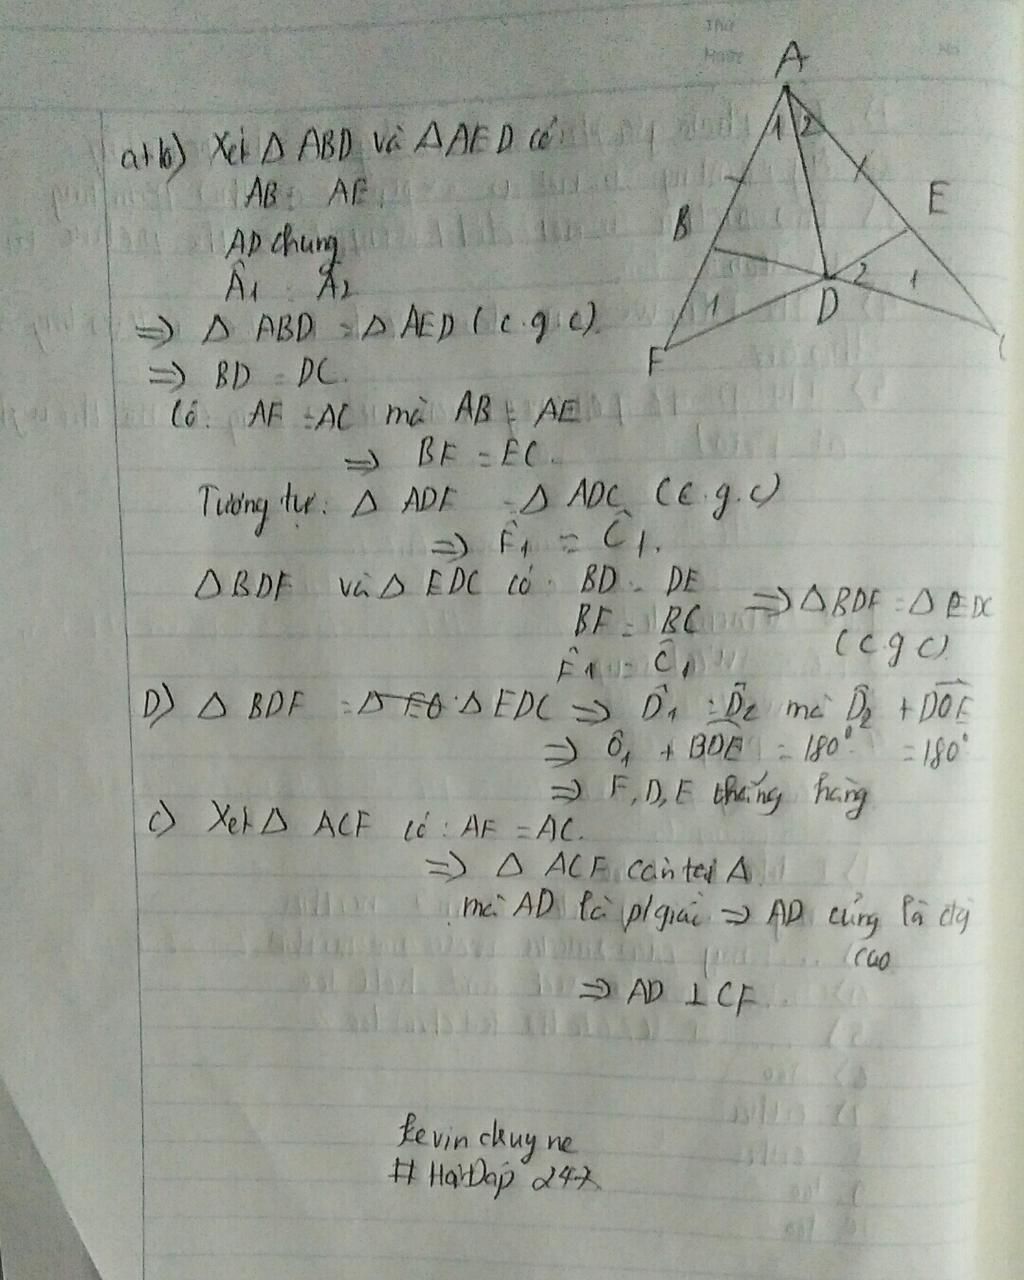 A
1 2
B
E
1
2
1
D
F
a+b) Xét Δ ABD và Δ AED có
AB = AE
AD chung
Â1 = Â2
⇒ Δ ABD = Δ AED (c.g.c)
⇒ BD = DC.
Có: AF = AC mà AB = AE
⇒ BF = EC.
Tương tự: Δ ADF = Δ ADC (c.g.c)
⇒ F̂1 = Ĉ1.
Δ BDF và Δ EDC có: BD = DE
BF = BC
F̂1 = Ĉ1
⇒ Δ BDF = Δ EDC
(c.g.c)
D) Δ BDF = Δ EDC ⇒ D̂1 = D̂2 mà D̂2 +
⇒ + BDE = 180° = 180°
⇒ F, D, E thẳng hàng
c) Xét Δ ACF có: AF = AC.
⇒ Δ ACF cân tại A
mà AD là p/giác ⇒ AD cũng là đg
cao
⇒ AD ⊥ CF.
kevin chuy ne
# HoiDap 247